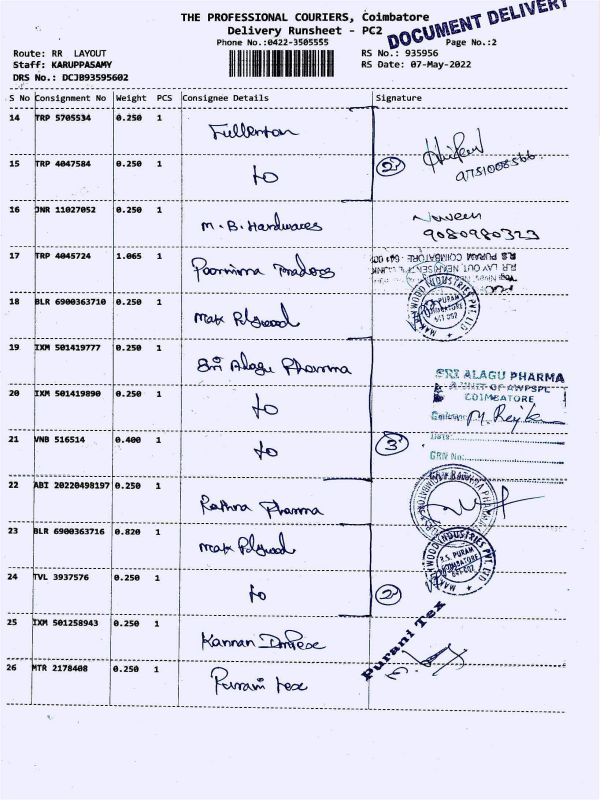 THE PROFESSIONAL COURIERS, Coimbatore
Delivery Runsheet - PC2
DOCUMENT DELIVERY
Phone No.:0422-3505555
Page No.:2
Route: RR LAYOUT
RS No.: 935956
Staff: KARUPPASAMY
RS Date: 07-May-2022
DRS No.: DCJB93595602
S No Consignment No Weight PCS Consignee Details Signature
14 TRP 5705534 0.250 1 Fullerton
15 TRP 4047584 0.250 1 to 2 9751008566
16 JNR 11027052 0.250 1 M.B. Hardwares Naveen
9080980323
17 TRP 4045724 1.065 1 Poornima Traders
R.S. PURAM COIMBATORE - 641 002
18 BLR 6900363710 0.250 1 Max Plywood
19 IXM 501419777 0.250 1 Sri Alagu Pharma
SRI ALAGU PHARMA
A UNIT OF AWPSPL
COIMBATORE
20 IXM 501419890 0.250 1 to
21 VNB 516514 0.400 1 to 3
Date:
GRN No:
22 ABI 20220498197 0.250 1 Rathna Pharma
23 BLR 6900363716 0.820 1 Max Plywood
24 TVL 3937576 0.250 1 to 2
25 IXM 501258943 0.250 1 Kannan Impex
Purani Tex
26 MTR 2178408 0.250 1 Purani tex